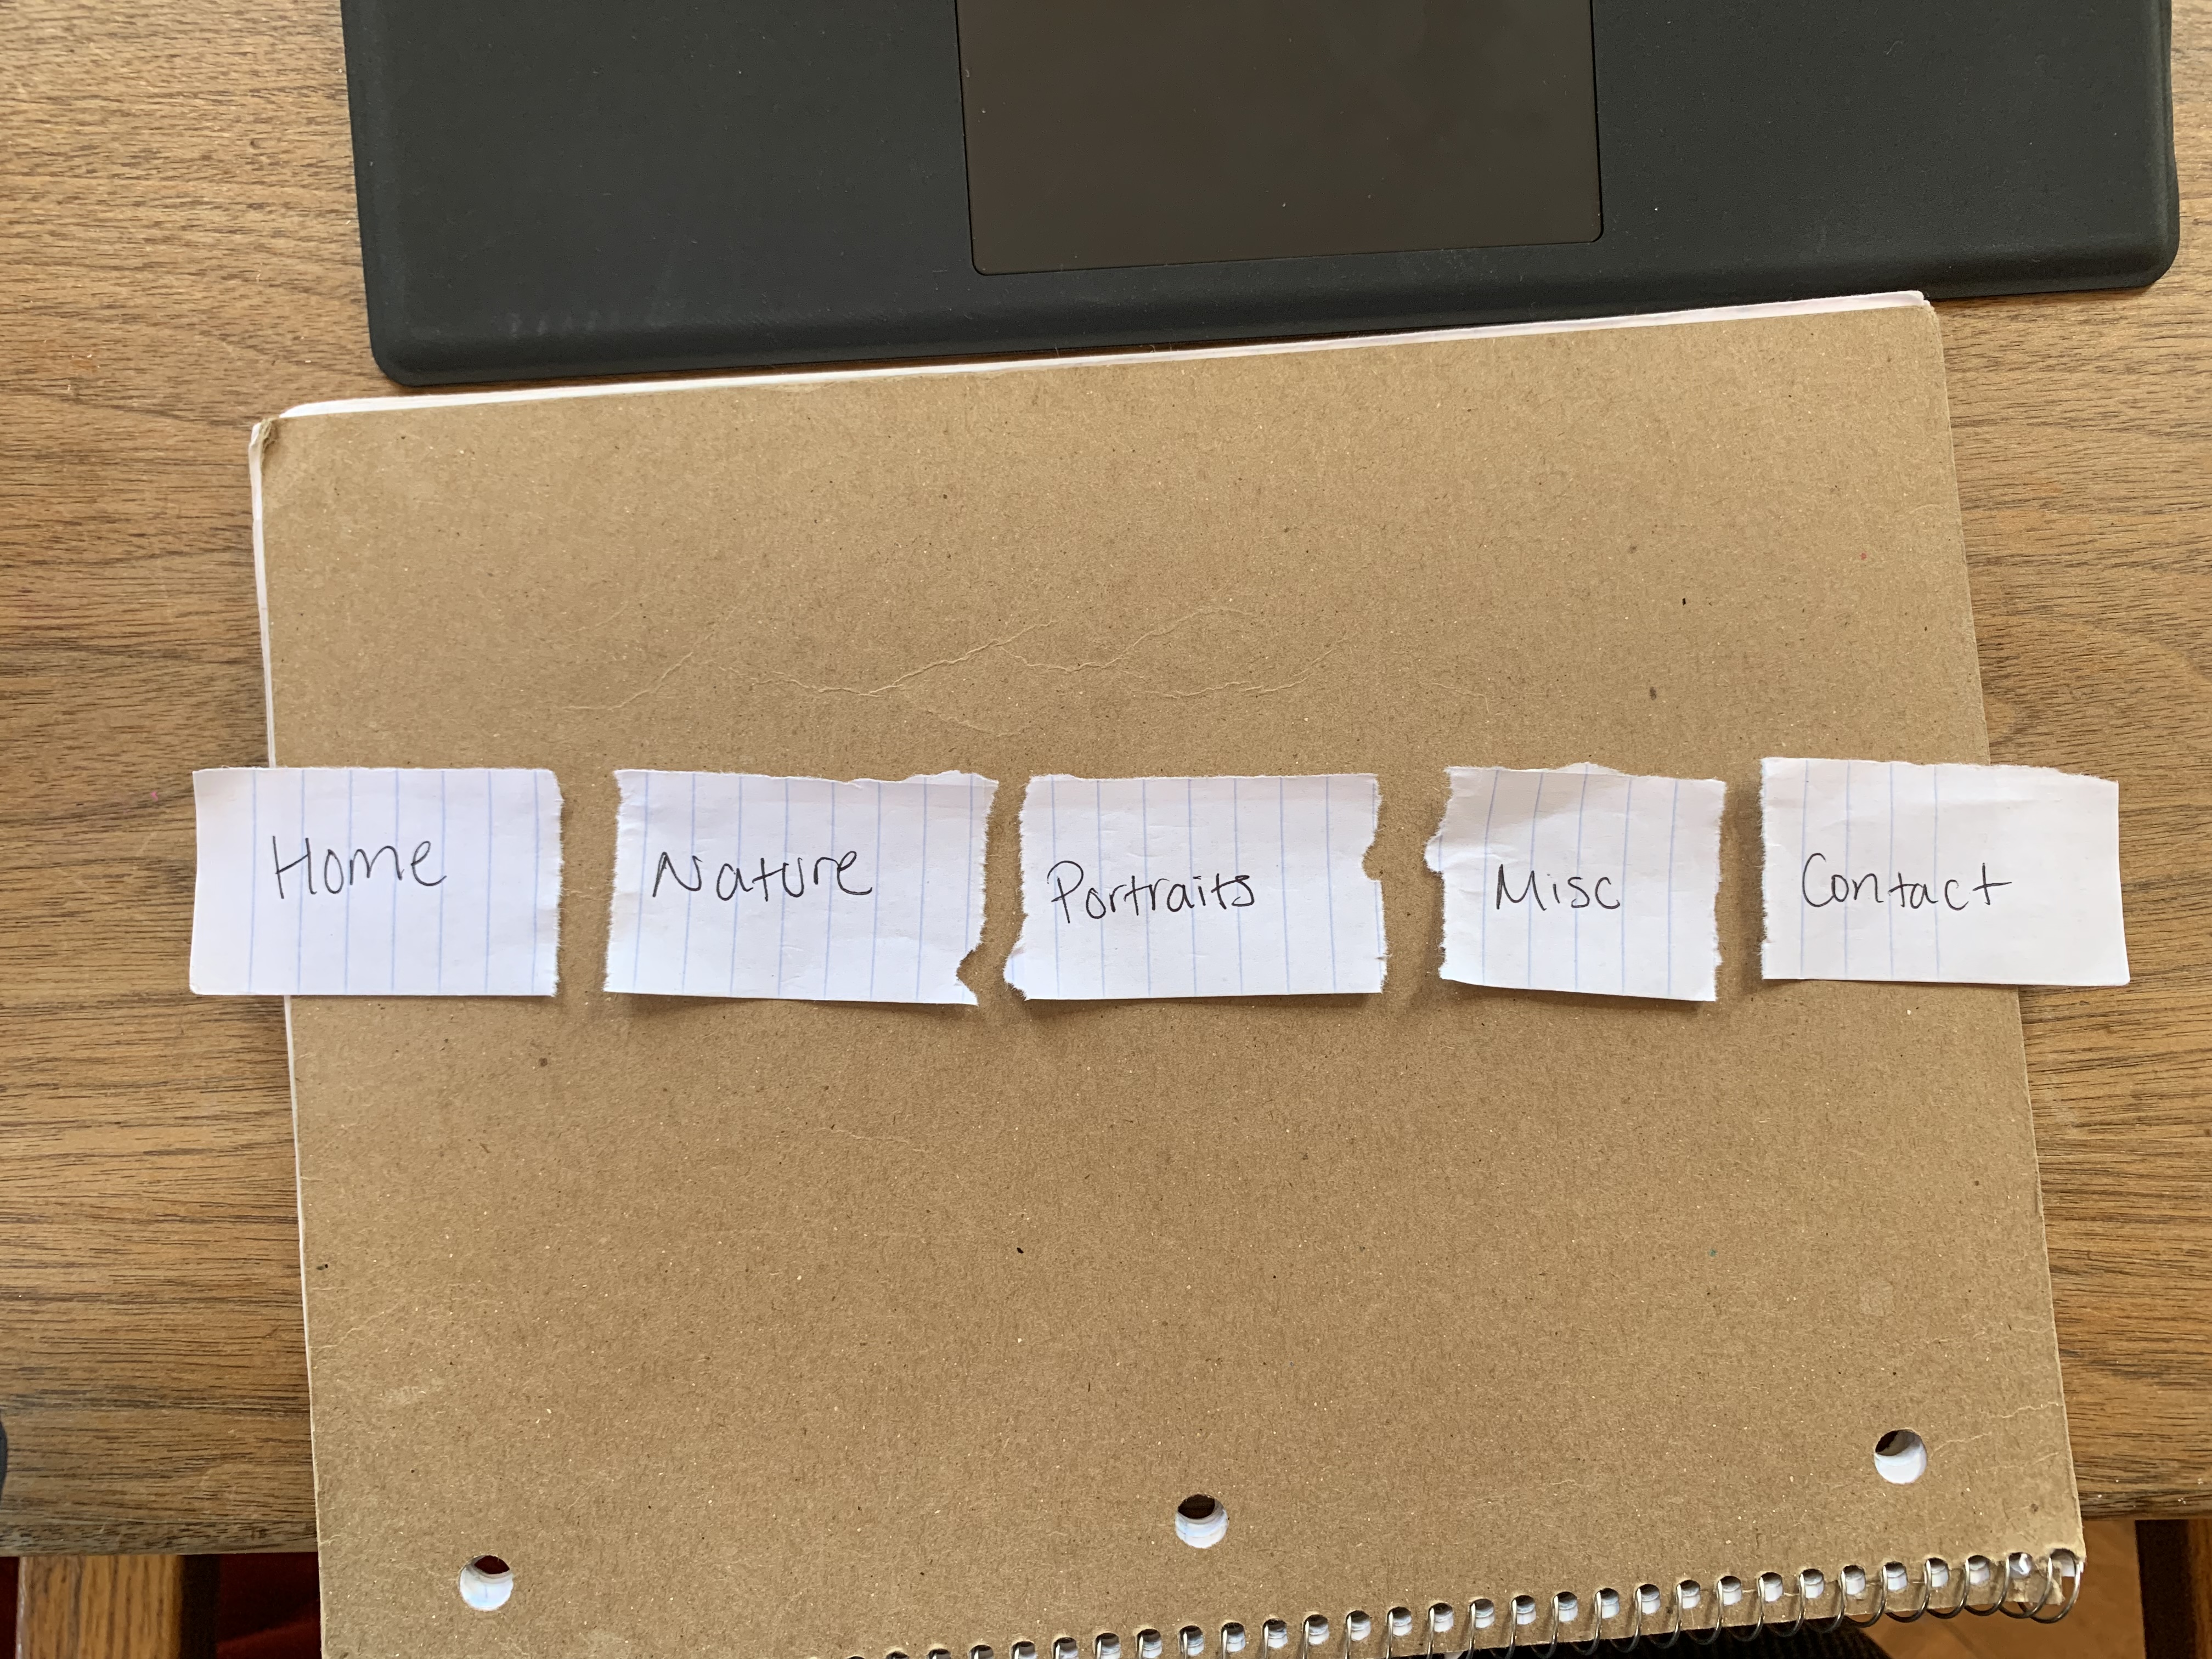 Home
Nature
Portraits
Misc
Contact